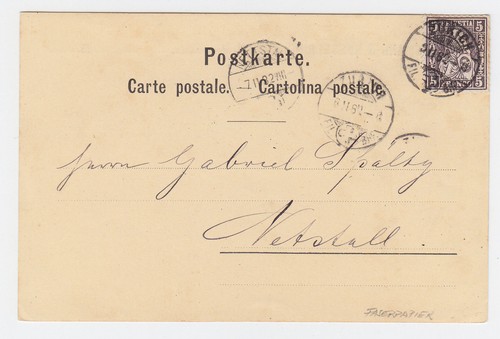 Postkarte.
Carte postale. Cartolina postale.
Herrn Gabriel Spälty
Netstall.
FASERPAPIER
5 5